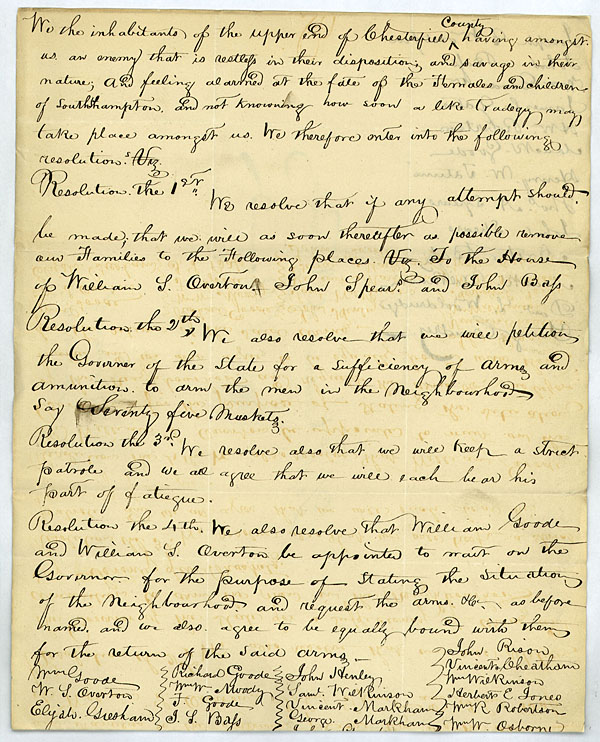 We the inhabitants of the upper end of Chesterfield County having amongst
us an enemy that is restless in their disposition; and savage in their
nature; and feeling alarmed at the fate of the Females and children
of Southhampton, and not knowning how soon a like tradegy may
take place amongst us. We therefore enter into the following
resolutions. Viz
Resolution. the 1st.
We resolve that if any attempt should.
be made; that we will as soon thereafter as possible remove
our Families to the Following places. Viz. To the House
of William S. Overton, John Spears. and John Bass
Resolution. the 2th, We also resolve that we will petition
the Governer of the State for a sufficiency of arms and
amunition. to arm the men in the Neighbourhood
Say Seventy five Muskets.
Resolution the 3rd. We resolve also that we will keep a strict
patrole and we all agree that we will each bear his
part of fatiegue.
Resolution the 4th. We also resolve that William Goode
and William S. Overton be appointed to wait on the
Govornor for the purpose of Stating the situation
of the Neighbourhood and request the arms. &c. as before
named. and we also agree to be equally bound with them
for the return of the said arms.
Wm Goode
W. S. Overton
Elijah. Gresham
Richard Goode
Wm W. Moody
T. Goode
J. S. Bass
John Henley
Saml. Wilkinson
Vincent Markham
George Markham
John Rison
Vincent Cheatham
Wm Wilkinson
Herbert E. Jones
Wm R. Robertson
Wm W. Osborne